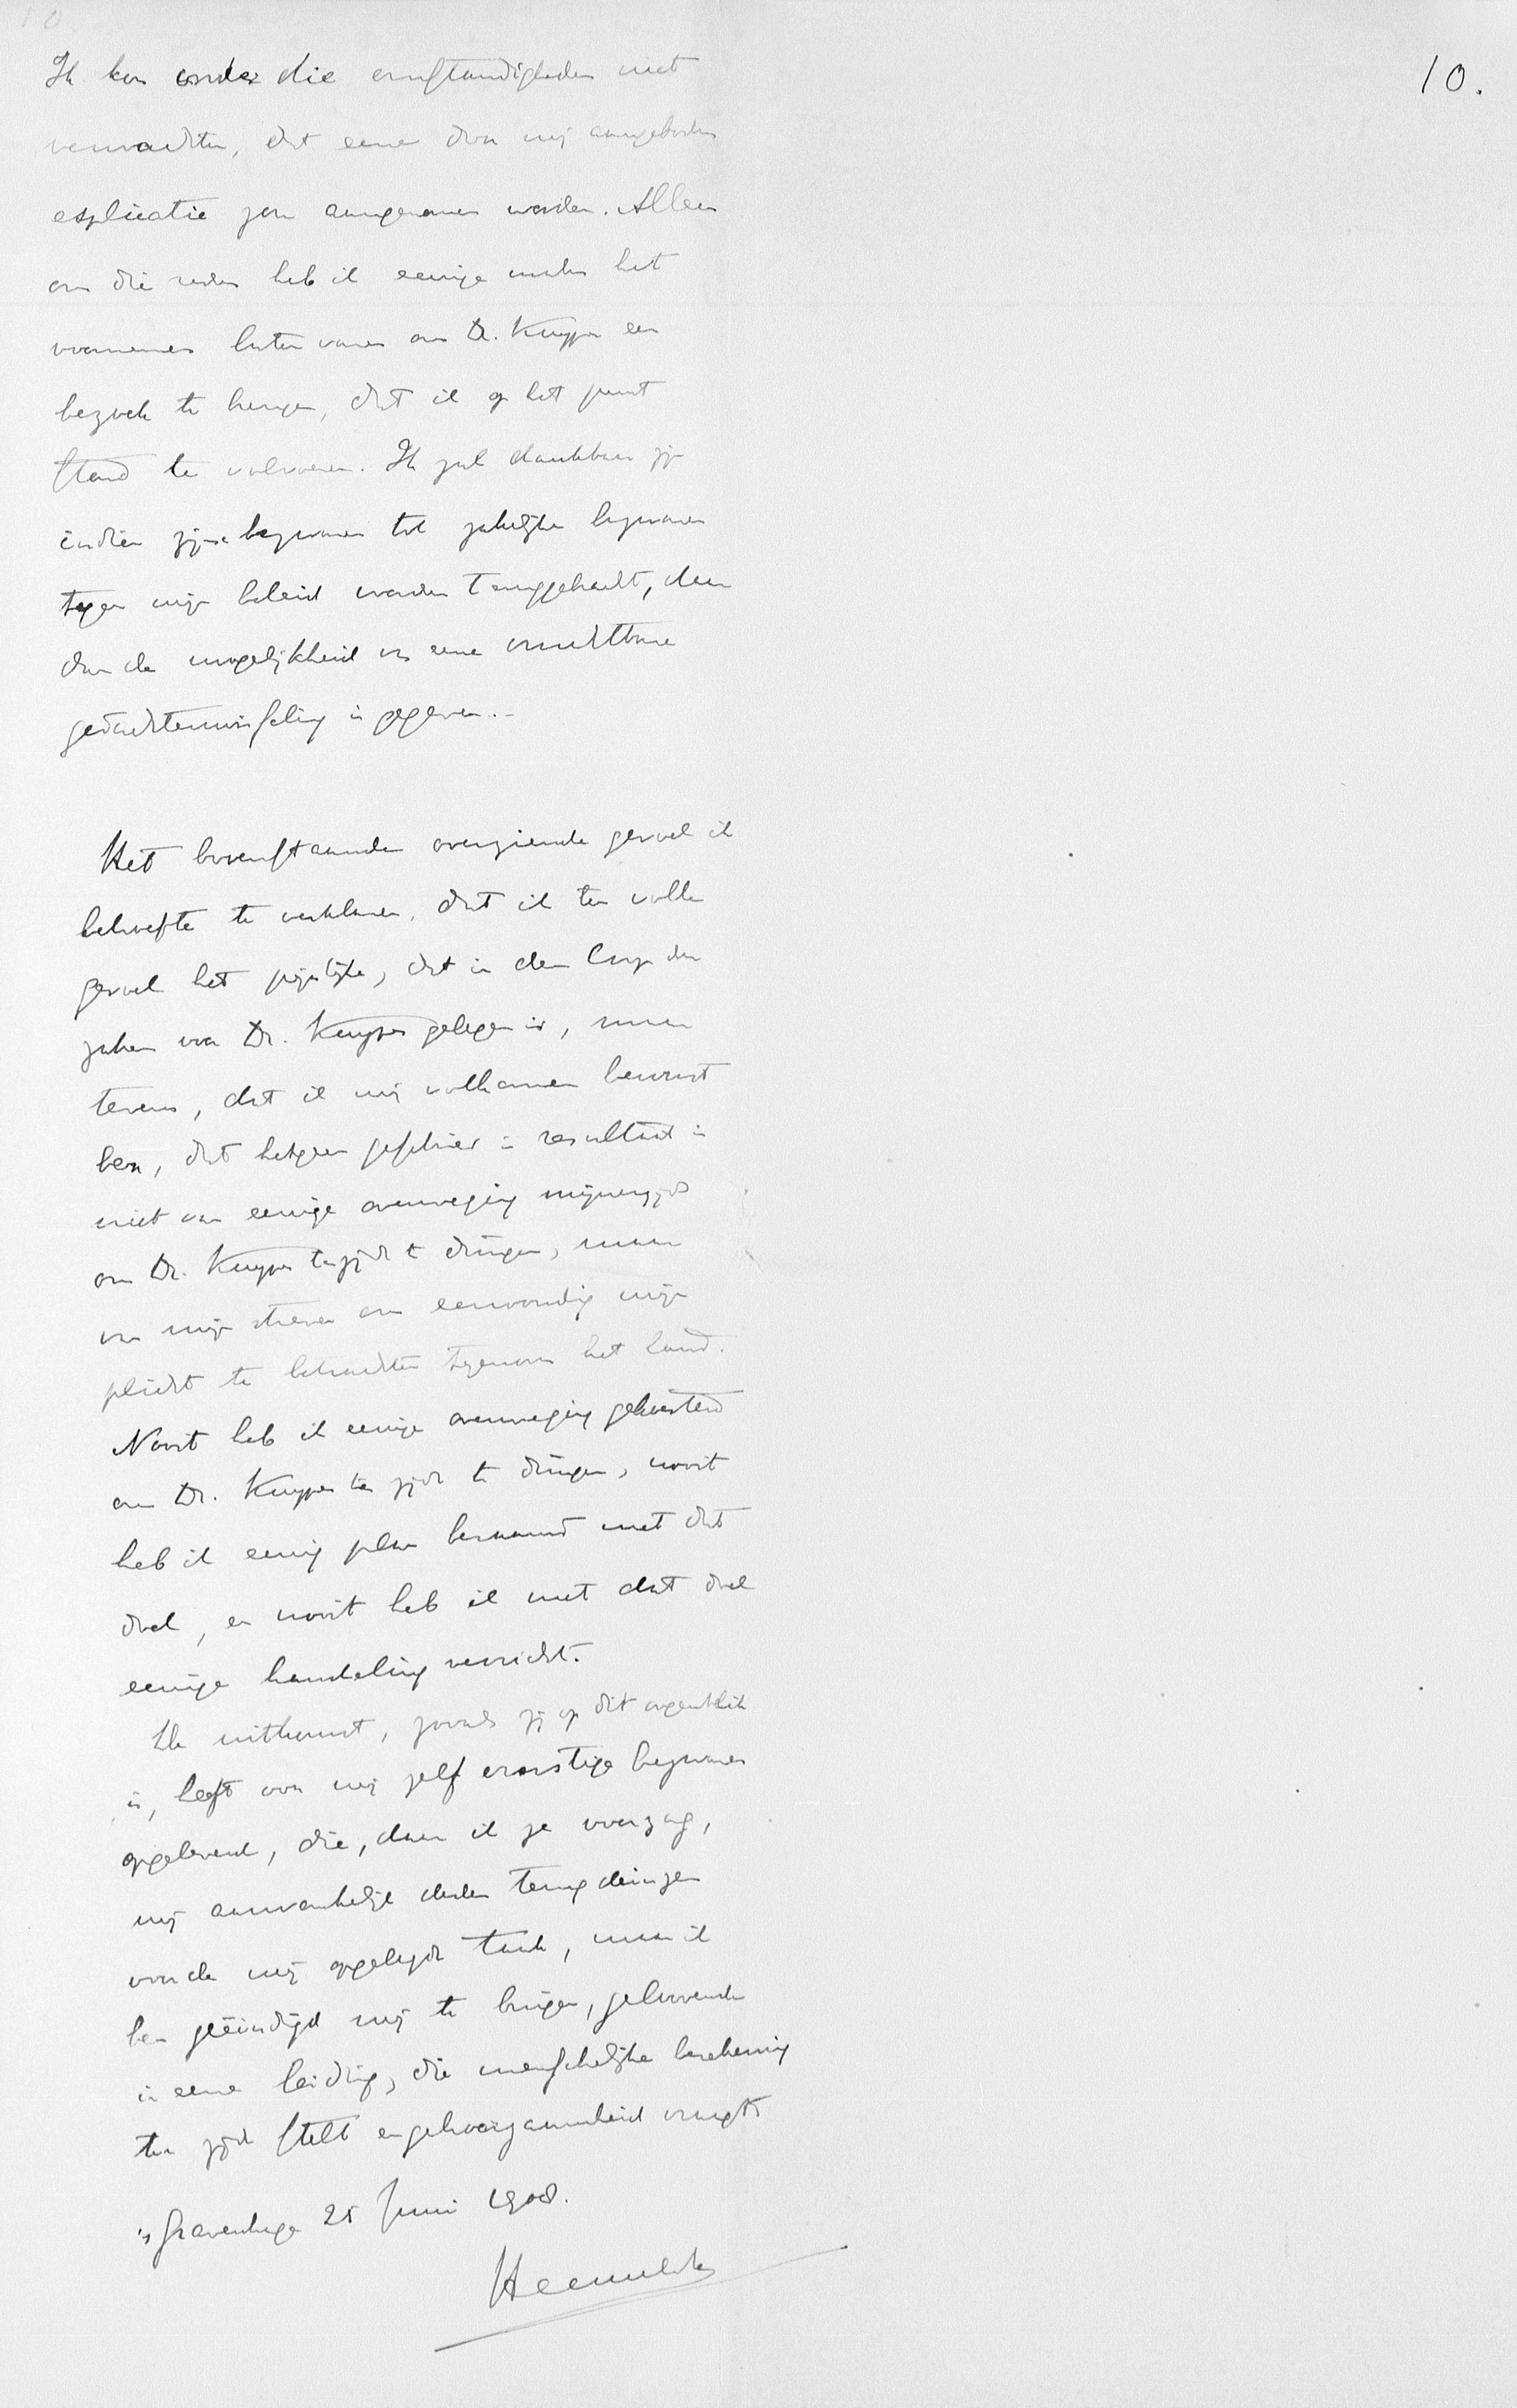 10.
Ik kon onder die omstandigheden niet
verwachten, dat eene door mij aangeboden
explicatie zou aangenomen worden. Alleen
om die reden heb ik eenige malen het
voornemen laten varen om Dr. Kuyper een
bezoek te brengen, dat ik op het punt
stond te volvoeren. Ik zal dankbaar zijn
indien zijne bezwaren tot zakelijke bezwaren
tegen mijn beleid worden teruggebracht, daar
dan de mogelijkheid van eene vruchtbare
gedachtenwisseling is gegeven.-
Het bovenstaande overziende gevoel ik
behoefte te verklaren, dat ik ten volle
gevoel het pijnlijke, dat in den loop der
zaken voor Dr. Kuyper gelegen is, maar
tevens, dat ik mij volkomen bewust
ben, dat hetgeen geschied is resultaat is
niet van eenige overweging mijnerzijds
om Dr. Kuyper terzijde te dringen, maar
van mijn streven om eenvoudig mijn
plicht te betrachten tegenover het land.
Nooit heb ik eenige overweging gekoesterd
om Dr. Kuyper ter zijde te dringen, nooit
heb ik eenig plan beraamd met dat
doel, en nooit heb ik met dat doel
eenige handeling verricht.
De uitkomst, zooals zij op dit oogenblik
is, heeft voor mij zelf ernstige bezwaren
opgeleverd, die, daar ik ze voorzag,
mij aanvankelijk deden terugdeinzen
voor de mij opgelegde taak, maar ik
ben geëindigd mij te buigen, geloovende
in eene leiding, die menschelijke berekening
ter zijde stelt en gehoorzaamheid vraagt.
's Gravenhage 25 Juni 1908.
Heemskerk